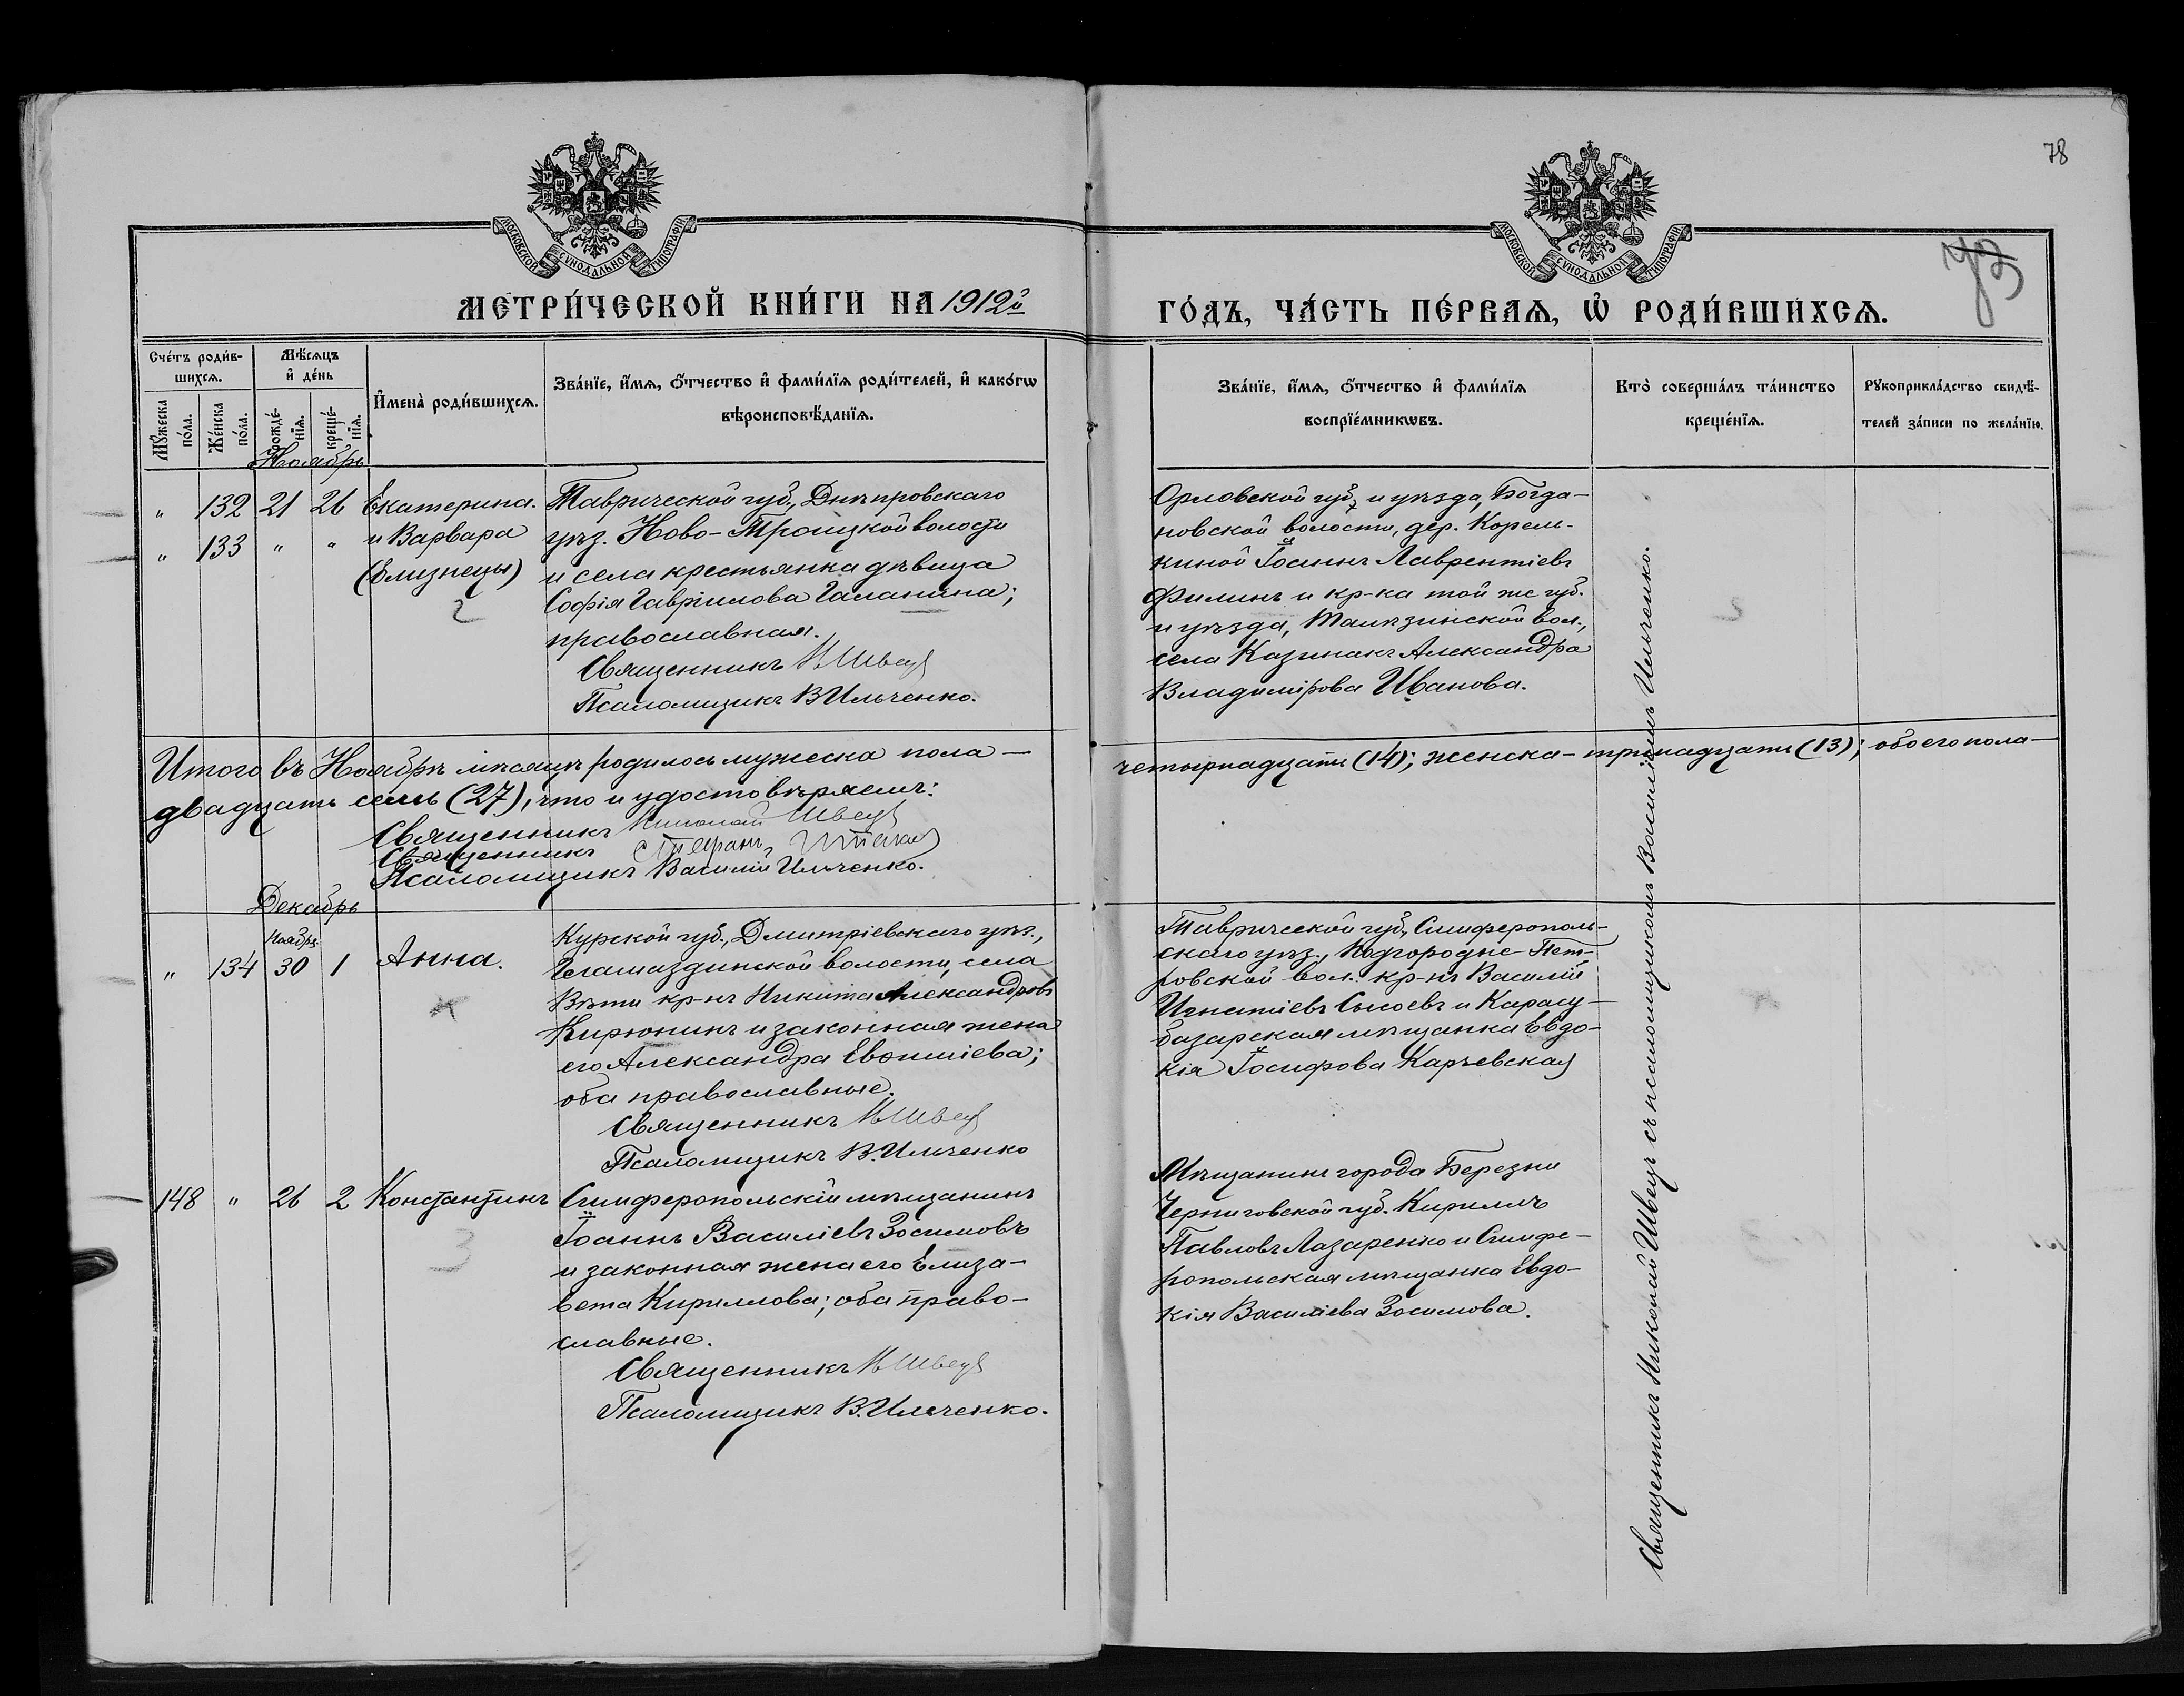 78
73
МОСКОВСКОЙ СѴНОДАЛЬНОЙ ТИПОГРАФІИ
МОСКОВСКОЙ СѴНОДАЛЬНОЙ ТИПОГРАФІИ
МЕТРИ́ЧЕСКОЙ КНИ́ГИ НА 1912й
ГО́ДЪ, ЧА́СТЬ ПЕ́РВАѦ, Ѡ҆ РОДИ́ВШИХСѦ.
Сче́тъ роди́в-
шихсѧ.
Мѣ́сѧцъ
и҆ де́нь
Мꙋ́жеска по́ла.
Же́нска по́ла.
рожде́-
нїѧ.
креще́-
нїѧ.
И҆мена̀ роди́вшихсѧ.
Зва́нїе, и҆́мѧ, ѻ҆́тчество и҆ фами́лїѧ роди́телей, и҆ како́гѡ
вѣроисповѣ́данїѧ.
Зва́нїе, и҆́мѧ, ѻ҆́тчество и҆ фами́лїѧ
воспрїе́мникѡвъ.
Кто̀ соверша́лъ та́инство
креще́нїѧ.
Рꙋкоприкла́дство свидѣ́-
телей за́писи по жела́нїю.
Ноябрь
" 132 21 26 Екатерина.
" 133 " " и Варвара
(близнецы)
2
Таврической губ., Днѣпровскаго
уѣз. Ново-Троицкой волости
и села крестьянка дѣвица
Софія Гавріилова Галанина;
православная.
Священникъ Н Швецъ
Псаломщикъ В Ильченко.
Орловской губ. и уѣзда, Богда-
новской волости, дер. Корель-
киной Іоаннъ Лаврентіевъ
Филинъ и кр-ка той же губ.
и уѣзда, вол.,
села Казинакъ Александра
Владимірова Иванова.
Итого въ Ноябрѣ мѣсяцѣ родилось мужеска пола —
четырнадцать (14); женска — тринадцать (13); обоего пола —
двадцать семь (27), что и удостовѣряемъ:
Священникъ Николай Швецъ
Священникъ Стефанъ
Псаломщикъ Василій Ильченко.
Декабрь
Ноября
" 134 30 1 Анна.
Курской губ., Дмитріевскаго уѣз.,
волости, села
Вѣти кр-нъ Никита Александровъ
Кирюнинъ и законная жена
его Александра Евѳиміева;
оба православные.
Священникъ Н Швецъ
Псаломщикъ В. Ильченко
Таврической губ., Симферополь-
скаго уѣз., Подгородне-Пет-
ровской вол. кр-нъ Василій
Игнатіевъ Сысоевъ и Карасу-
базарская мѣщанка Евдо-
кія Іосифова Карчевская
148 " 26 2 Константинъ
3
Симферопольскій мѣщанинъ
Іоаннъ Василіевъ Зосимовъ
и законная жена его Елиза-
вета Кириллова; оба право-
славные.
Священникъ Н Швецъ
Псаломщикъ В. Ильченко.
Мѣщанинъ города Березни
Черниговской губ. Кириллъ
Павловъ Лазаренко и Симфе-
ропольская мѣщанка Евдо-
кія Василіева Зосимова.
Священникъ Николай Швецъ съ псаломщикомъ Василіемъ Ильченко.